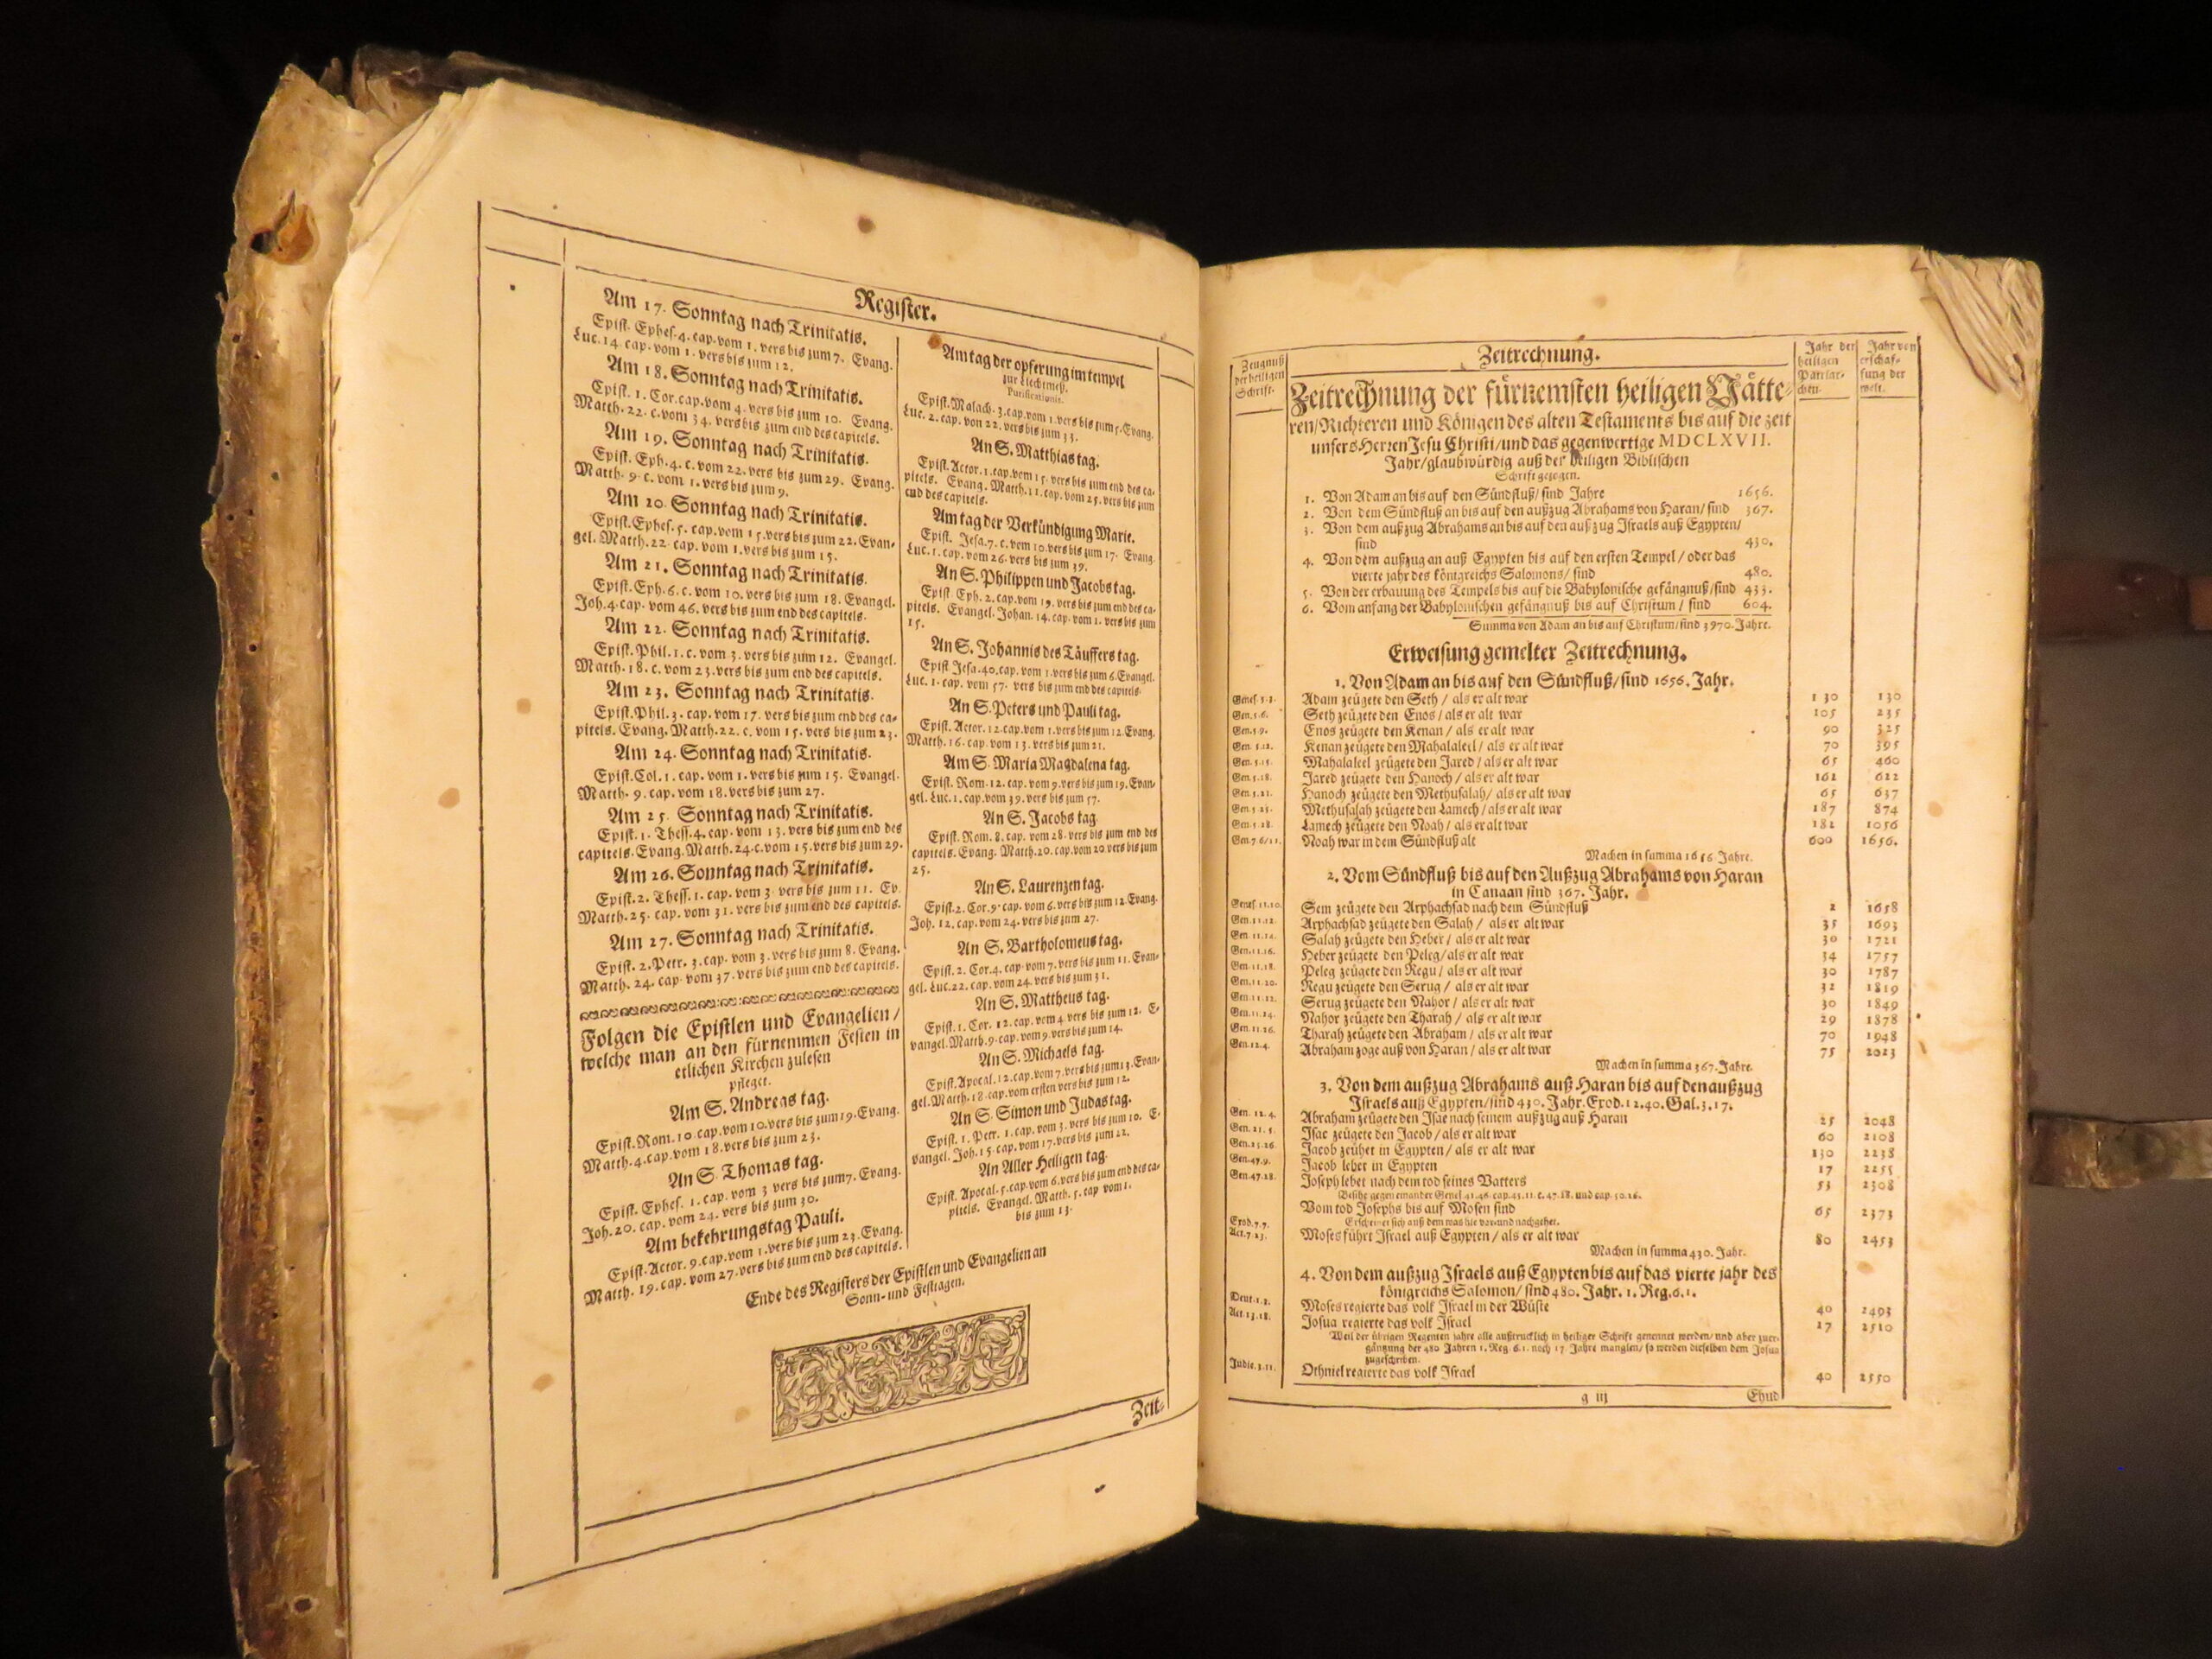 Register.
Am 17. Sonntag nach Trinitatis.
Epist. Ephes. 4. cap. vom 1. vers bis zum 7. Evang.
Luc. 14. cap. vom 1. vers bis zum 12.
Am 18. Sonntag nach Trinitatis.
Epist. 1. Cor. cap. vom 4. vers bis zum 10. Evang.
Matth. 22. c. vom 34. vers bis zum end des capitels.
Am 19. Sonntag nach Trinitatis.
Epist. Eph. 4. c. vom 22. vers bis zum 29. Evang.
Matth. 9. c. vom 1. vers bis zum 9.
Am 20. Sonntag nach Trinitatis.
Epist. Ephes. 5. cap. vom 15. vers bis zum 22. Evan-
gel. Matth. 22. cap. vom 1. vers bis zum 15.
Am 21. Sonntag nach Trinitatis.
Epist. Eph. 6. c. vom 10. vers bis zum 18. Evangel.
Joh. 4. cap. vom 46. vers bis zum end des capitels.
Am 22. Sonntag nach Trinitatis.
Epist. Phil. 1. c. vom 3. vers bis zum 12. Evangel.
Matth. 18. c. vom 23. vers bis zum end des capitels.
Am 23. Sonntag nach Trinitatis.
Epist. Phil. 3. cap. vom 17. vers bis zum end des ca-
pitels. Evang. Matth. 22. c. vom 15. vers bis zum 23.
Am 24. Sonntag nach Trinitatis.
Epist. Col. 1. cap. vom 1. vers bis zum 15. Evangel.
Matth. 9. cap. vom 18. vers bis zum 27.
Am 25. Sonntag nach Trinitatis.
Epist. 1. Thess. 4. cap. vom 13. vers bis zum end des
capitels. Evang. Matth. 24. c. vom 15. vers bis zum 29.
Am 26. Sonntag nach Trinitatis.
Epist. 2. Thess. 1. cap. vom 3. vers bis zum 11. Ev.
Matth. 25. cap. vom 31. vers bis zum end des capitels.
Am 27. Sonntag nach Trinitatis.
Epist. 2. Petr. 3. cap. vom 3. vers bis zum 8. Evang.
Matth. 24. cap. vom 37. vers bis zum end des capitels.
Folgen die Epistlen und Evangelien/
welche man an den fürnemmen Festen in
etlichen Kirchen zulesen
pfleget.
Am S. Andreas tag.
Epist. Rom. 10. cap. vom 10. vers bis zum 19. Evang.
Matth. 4. cap. vom 18. vers bis zum 23.
An S. Thomas tag.
Epist. Ephes. 1. cap. vom 3 vers bis zum 7. Evang.
Joh. 20. cap. vom 24. vers bis zum 30.
Am bekehrungstag Pauli.
Epist. Actor. 9. cap. vom 1. vers bis zum 23. Evang.
Matth. 19. cap. vom 27. vers bis zum end des capitels.
Am tag der opferung im tempel
zur Liechtmeß.
Purificationis.
Epist. Malach. 3. cap. vom 1. vers bis zum 5. Evang.
Luc. 2. cap. von 22. vers bis zum 33.
An S. Matthias tag.
Epist. Actor. 1. cap. vom 15. vers bis zum end des ca-
pitels. Evang. Matth. 11. cap. vom 25. vers bis zum
end des capitels.
Am tag der Verkündigung Marie.
Epist. Jesa. 7. c. vom 10. vers bis zum 17. Evang.
Luc. 1. cap. vom 26. vers bis zum 39.
An S. Philippen und Jacobs tag.
Epist. Eph. 2. cap. vom 19. vers bis zum end des ca-
pitels. Evangel. Johan. 14. cap. vom 1. vers bis zum
15.
An S. Johannis des Täuffers tag.
Epist. Jesa. 40. cap. vom 1. vers bis zum 6. Evangel.
Luc. 1. cap. vom 57. vers bis zum end des capitels.
An S. Peters und Pauli tag.
Epist. Actor. 12. cap. vom 1. vers bis zum 12. Evang.
Matth. 16. cap. vom 13. vers bis zum 21.
Am S. Maria Magdalena tag.
Epist. Rom. 12. cap. vom 9. vers bis zum 19. Evan-
gel. Luc. 1. cap. vom 39. vers bis zum 57.
An S. Jacobs tag.
Epist. Rom. 8. cap. vom 28. vers bis zum end des
capitels. Evang. Matth. 20. cap. vom 20 vers bis zum
25.
An S. Laurenzen tag.
Epist. 2. Cor. 9. cap. vom 6. vers bis zum 12. Evang.
Joh. 12. cap. vom 24. vers bis zum 27.
An S. Bartholomeus tag.
Epist. 2. Cor. 4. cap. vom 7. vers bis zum 11. Evan-
gel. Luc. 22. cap. vom 24. vers bis zum 31.
An S. Mattheus tag.
Epist. 1. Cor. 12. cap. vom 4 vers bis zum 12. E-
vangel. Matth. 9. cap. vom 9. vers bis zum 14.
An S. Michaels tag.
Epist. Apocal. 12. cap. vom 7. vers bis zum 13. Evan-
gel. Matth. 18. cap. vom ersten vers bis zum 12.
An S. Simon und Judas tag.
Epist. 1. Petr. 1. cap. vom 3. vers bis zum 10. E-
vangel. Joh. 15. cap. vom 17. vers bis zum 22.
An Aller Heiligen tag.
Epist. Apocal. 5. cap. vom 6. vers bis zum end des ca-
pitels. Evangel. Matth. 5. cap vom 1.
bis zum 13.
Ende des Registers der Epistlen und Evangelien an
Sonn- und Festtagen.
Zeit-
Zeugnuß der heiligen Schrift.
Zeitrechnung.
Jahr der heiligen Patriarchen.
Jahr von erschaffung der welt.
Zeitrechnung der fürnemsten heiligen Vätte-
ren/Richteren und Königen des alten Testaments bis auf die zeit
unsers Herren Jesu Christi/und das gegenwertige MDCLXVII.
Jahr/glaubwürdig auß der heiligen Biblischen
Schrift gezogen.
1. Von Adam an bis auf den Sündfluß/ sind Jahre 1656.
2. Von dem Sündfluß an bis auf den außzug Abrahams von Haran/ sind 367.
3. Von dem außzug Abrahams an bis auf den außzug Israels auß Egypten/
sind 430.
4. Von dem außzug an auß Egypten bis auf den ersten Tempel / oder das
vierte jahr des königreichs Salomons/ sind 480.
5. Von der erbauung des Tempels bis auf die Babylonische gefängnuß/sind 433.
6. Vom anfang der Babylonischen gefängnuß bis auf Christum / sind 604.
Summa von Adam an bis auf Christum/sind 3970. Jahre.
Erweisung gemelter Zeitrechnung.
1. Von Adam an bis auf den Sündfluß/sind 1656. Jahr.
Genes. 5. 3. Adam zeügete den Seth / als er alt war 130 130
Gen. 5. 6. Seth zeügete den Enos / als er alt war 105 235
Gen. 5. 9. Enos zeügete den Kenan / als er alt war 90 325
Gen. 5. 12. Kenan zeügete den Mahalaleel / als er alt war 70 395
Gen. 5. 15. Mahalaleel zeügete den Jared / als er alt war 65 460
Gen. 5. 18. Jared zeügete den Hanoch / als er alt war 162 622
Gen. 5. 21. Hanoch zeügete den Methusalah/ als er alt war 65 687
Gen. 5. 25. Methusalah zeügete den Lamech / als er alt war 187 874
Gen. 5. 28. Lamech zeügete den Noah / als er alt war 182 1056
Gen. 7. 6/11. Noah war in dem Sündfluß alt 600 1656.
Machen in summa 1656. Jahre.
2. Vom Sündfluß bis auf den Außzug Abrahams von Haran
in Canaan sind 367. Jahr.
Genes. 11. 10. Sem zeügete den Arphachsad nach dem Sündfluß 2 1658
Gen. 11. 12. Arphachsad zeügete den Salah / als er alt war 35 1693
Gen. 11. 14. Salah zeügete den Heber / als er alt war 30 1723
Gen. 11. 16. Heber zeügete den Peleg/als er alt war 34 1757
Gen. 11. 18. Peleg zeügete den Regu / als er alt war 30 1787
Gen. 11. 20. Regu zeügete den Serug / als er alt war 32 1819
Gen. 11. 22. Serug zeügete den Nahor / als er alt war 30 1849
Gen. 11. 24. Nahor zeügete den Tharah / als er alt war 29 1878
Gen. 11. 26. Tharah zeügete den Abraham / als er alt war 70 1948
Gen. 12. 4. Abraham zoge auß von Haran / als er alt war 75 2023
Machen in summa 367. Jahre.
3. Von dem außzug Abrahams auß Haran bis auf den außzug
Israels auß Egypten/sind 430. Jahr. Exod. 12. 40. Gal. 3. 17.
Gen. 12. 4. Abraham zeügete den Isac nach seinem außzug auß Haran 25 2048
Gen. 21. 5. Isac zeügete den Jacob / als er alt war 60 2108
Gen. 25. 26. Jacob zeühet in Egypten/ als er alt war 130 2238
Gen. 47. 9. Jacob lebet in Egypten 17 2255
Gen. 47. 28. Joseph lebet nach dem tod seines Vatters 53 2308
Besihe gegen einander Genes. 41. 46. cap. 45. 11. c. 47. 28. und cap. 50. 26.
Vom tod Josephs bis auf Mosen sind 65 2373
Erscheinet sich auß dem was hie vor und nachgehet.
Exod. 7. 7. Act. 7. 23. Moses führt Israel auß Egypten / als er alt war 80 2453
Machen in summa 430. Jahr.
4. Von dem außzug Israels auß Egypten bis auf das vierte jahr des
königreichs Salomon/ sind 480. Jahr. 1. Reg. 6. 1.
Deut. 1. 3. Moses regierte das volk Israel in der Wüste 40 2493
Act. 13. 18. Josua regierte das volk Israel 17 2510
Weil der übrigen Regenten jahre alle außtrucklich in heiliger Schrift genennet werden/ und aber zuer-
gäntzung der 480 Jahren 1. Reg. 6. 1. noch 17. Jahre manglen/ so werden dieselben dem Josua
zugeschriben.
Judic. 3. 11. Othniel regierte das volk Israel 40 2550
g iij
Ehud